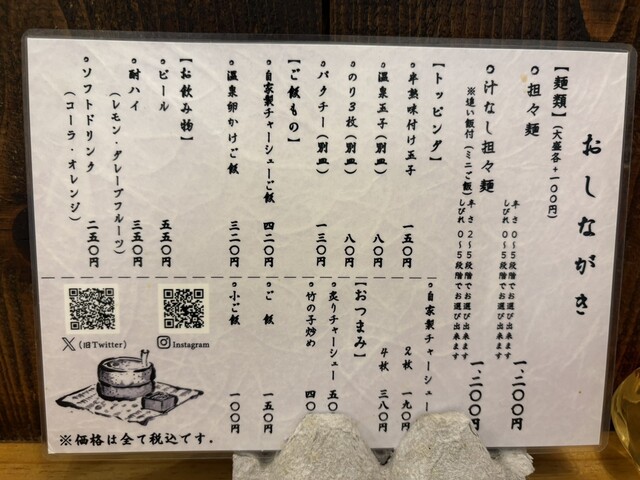 おしながき
【麺類】(大盛各+一〇〇円)
○担々麺
辛さ 0～5段階でお選び出来ます
しびれ 0～5段階でお選び出来ます
一、二〇〇円
○汁なし担々麺
※追い飯付(ミニご飯)
辛さ 2～5段階でお選び出来ます
しびれ 0～5段階でお選び出来ます
一、二〇〇円
【トッピング】
○半熟味付け玉子 一五〇円
○温泉玉子(別皿) 八〇円
○のり3枚(別皿) 八〇円
○パクチー(別皿) 一三〇円
○自家製チャーシュー
2枚 一九〇円
4枚 三八〇円
【ご飯もの】
○自家製チャーシューご飯 四二〇円
○温泉卵かけご飯 三二〇円
○ご飯 一五〇円
○小ご飯 一〇〇円
【おつまみ】
○炙りチャーシュー 五〇
○竹の子炒め 四〇
【お飲み物】
○ビール 五五〇円
○酎ハイ 三五〇円
(レモン・グレープフルーツ)
○ソフトドリンク 二五〇円
(コーラ・オレンジ)
X(旧Twitter)
Instagram
※価格は全て税込です。